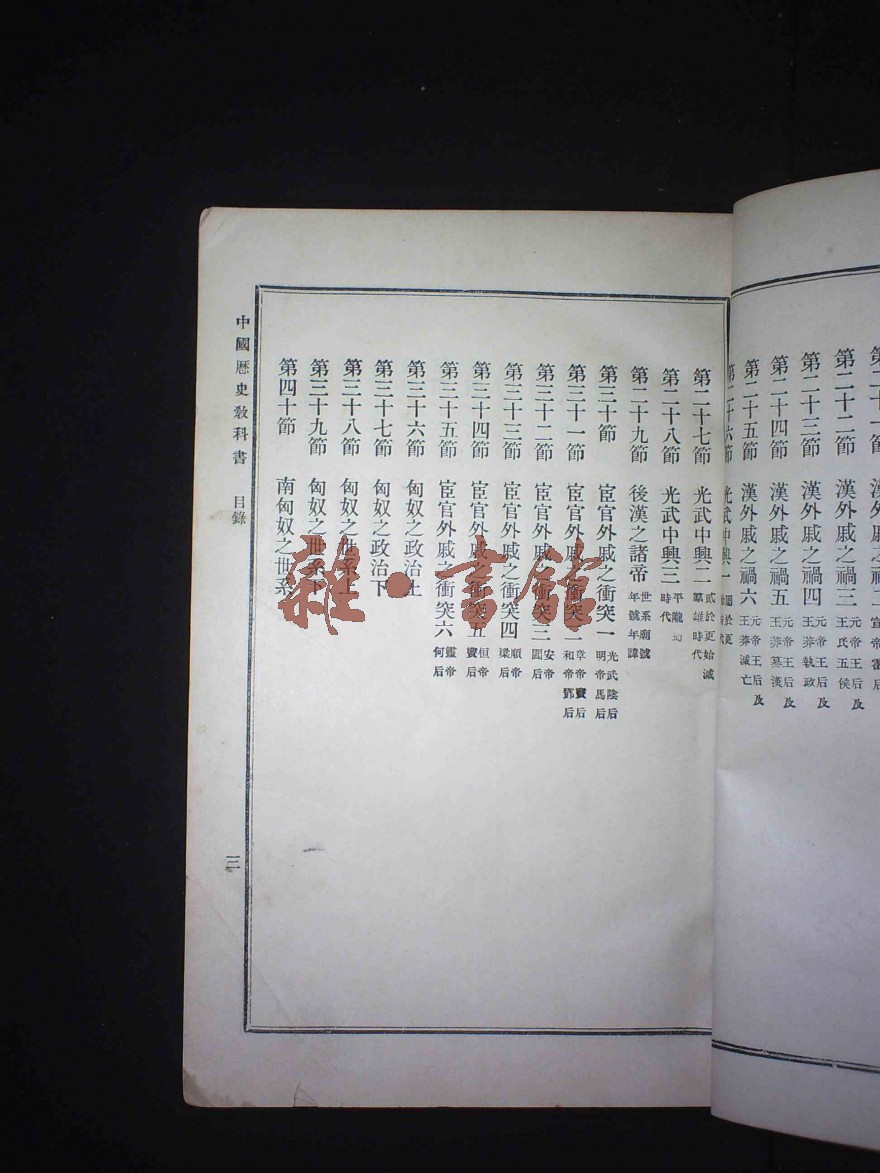 漢外戚之禍三 元帝王后及 王氏五侯
第二十二節
第二十三節 漢外戚之禍四 元帝王后及 王莽執政
第二十四節 漢外戚之禍五 元帝王后及 王莽篡漢
第二十五節 漢外戚之禍六 元帝王后及 王莽滅亡
第二十六節 光武中興一
第二十七節 光武中興二 武於更始滅 羣雄時代
第二十八節 光武中興三 平隴 時代
第二十九節 後漢之諸帝 世系廟號 年號年諱
第三十節 宦官外戚之衝突一 光武陰后 明帝馬后
第三十一節 宦官外戚之衝突二 章帝竇后 和帝鄧后
第三十二節 宦官外戚之衝突三 安帝 閻后
第三十三節 宦官外戚之衝突四 順帝 梁后
第三十四節 宦官外戚之衝突五 桓帝 竇后
第三十五節 宦官外戚之衝突六 靈帝 何后
第三十六節 匈奴之政治上
第三十七節 匈奴之政治下
第三十八節 匈奴之世系上
第三十九節 匈奴之世系下
第四十節 南匈奴之世系
中國歷史教科書 目錄
三
雜·書館